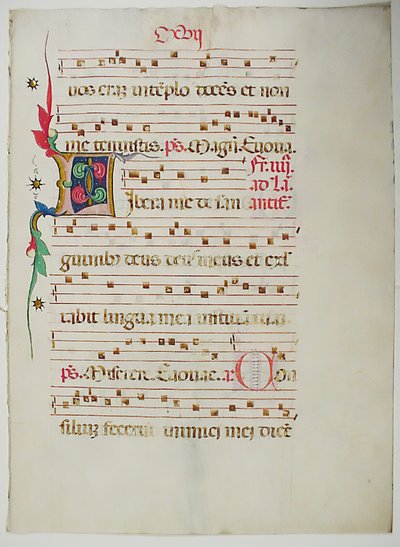 CXVIJ
uos erã in tẽplo docẽs et non
me tenuistis. ps. Magnĩ. Euoua.
fr. iiij.
ad la.
Libera me de san antiẽ.
guinibꝫ deus deus meus et exl
tabit lingua mea iusticia
ps. Miserere. Euouae. a. Con
silium fecerũt inimici mei dicẽt